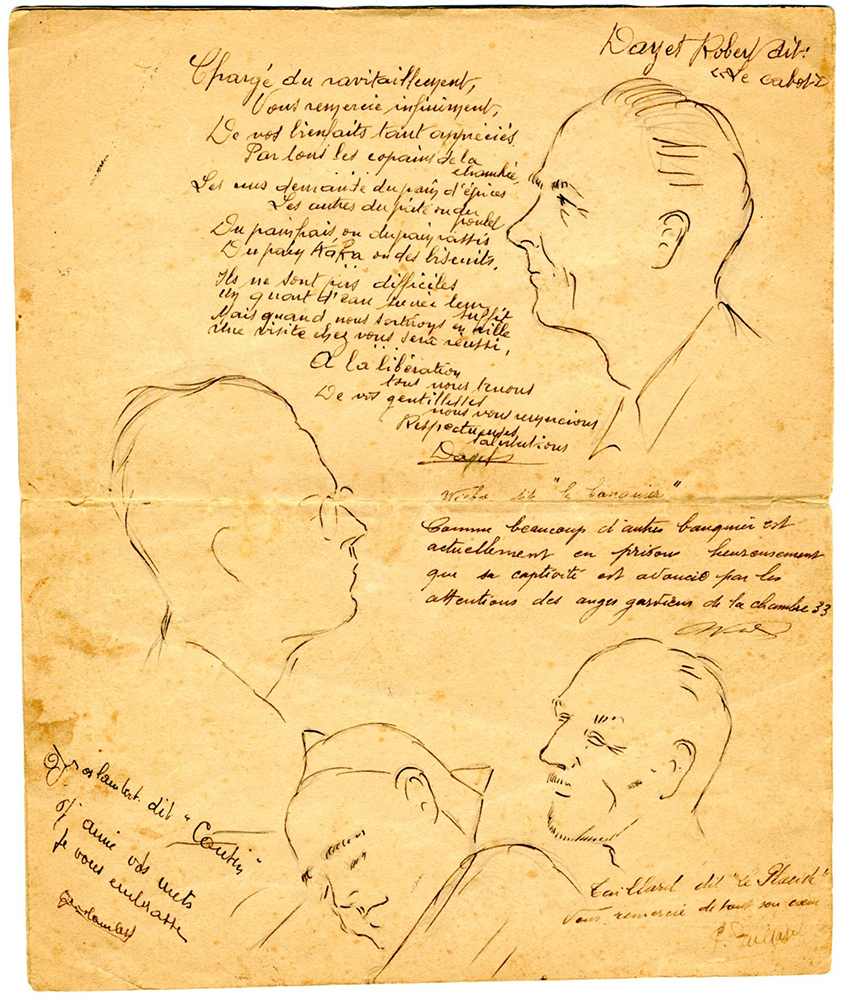 Dayet Robert dit:
"Le cabot"
Chargé du ravitaillement,
Vous remercie infiniment,
De vos bienfaits tant appréciés
Par tous les copains de la
chambrée,
Les uns demande du pain d'épices
Les autres du pâté ou du
poulet
Du pain frais ou du pain rassis
Du pain KaKa ou des biscuits,
Ils ne sont pas difficiles
un quart d'eau sucrée leur
suffit
Mais quand nous sortirons en ville
Une visite chez vous sera réussi,
A la libération
tous nous
De vos gentillesses
nous vous remercions
Respectueuses
salutations
Dayet
dit "le
Comme beaucoup d'autres banquier est
actuellement en prison heureusement
que sa captivité est adoucie par les
attentions des anges gardiens de la chambre 33
dit "
j'aime vos mets
Je vous embrasse
Taillard dit "Le Placide"
Vous remercie de tout son cœur